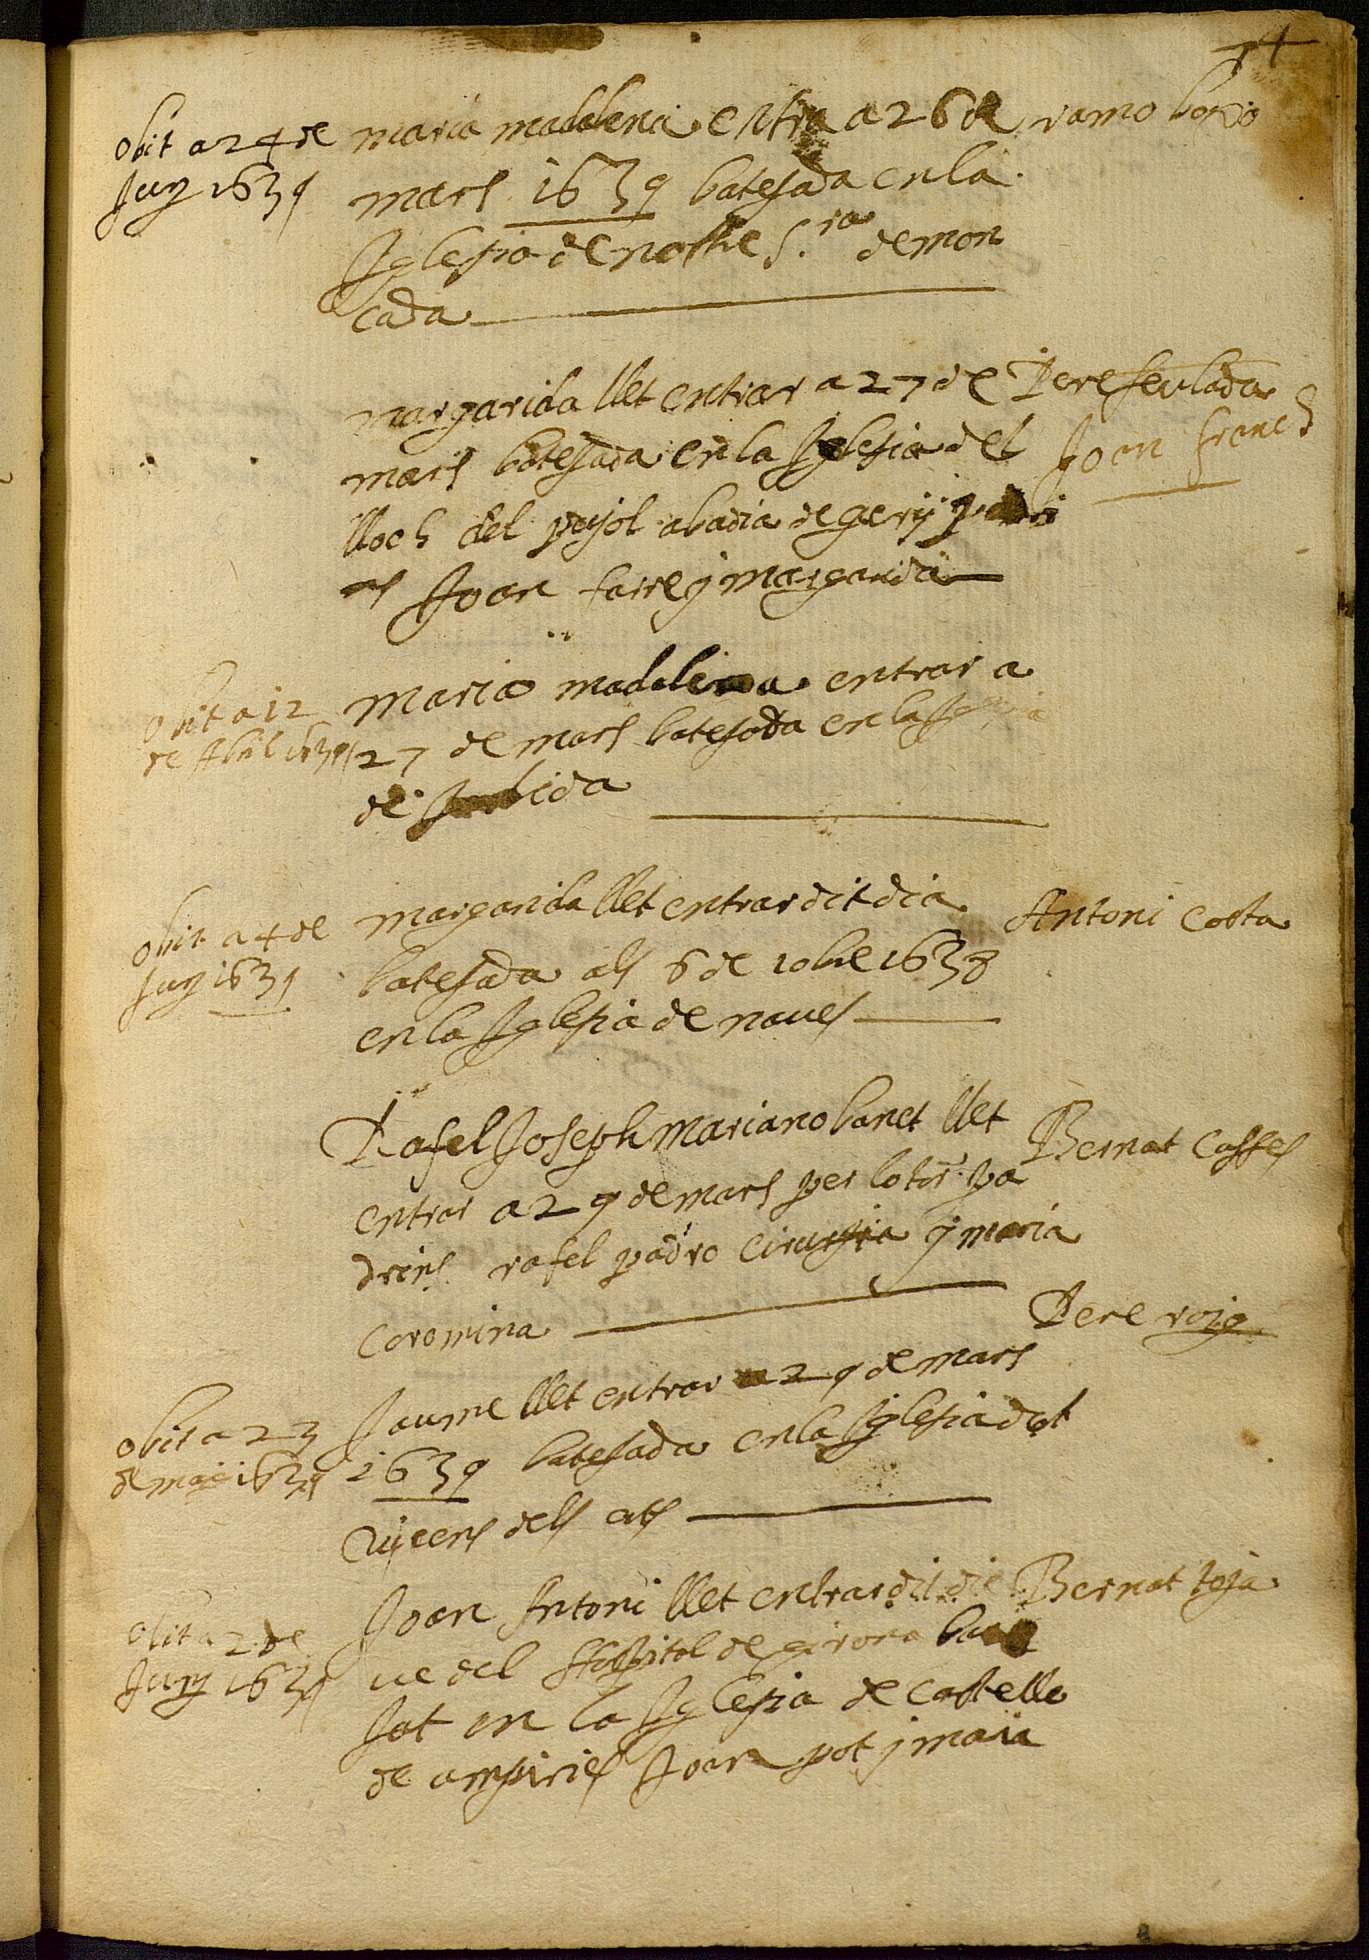 74
obit a 24 de
Juy 1639
maria madalena entra a 26 de
mars 1639 batesada en la
Iglesia de nostre S.ra de mon
cada
ramo
margarida llet entrar a 27 de
mars batesada en la Iglesia del
lloch del pujol abadia de gerij
Joan farre y margarida
Pere
Joan franch
obit a 12
de Abril 1639
maria madalena entrar a
27 de mars batesada en la
de
obit a 4 de
Juy 1639
margarida llet entrar dit dia
batesada als 6 de 10bre 1638
en la Iglesia de naues
Antoni costa
Rafel Joseph mariano banet llet
entrar a 29 de mars per lo torn pa
drins rafel padro cirurgia y maria
coromina
Bernat casses
obit a 23
de maig 1639
Jaume llet entrar a 29 de mars
1639 batesada en la Iglesia de st
dels
Pere roig
obit a 2 de
Juny 1639
Joan Antoni llet entrar dit die
ue del Hospital de girona bate
sat en la Iglesia de castello
de ampiries Joan pot y maria
Bernat